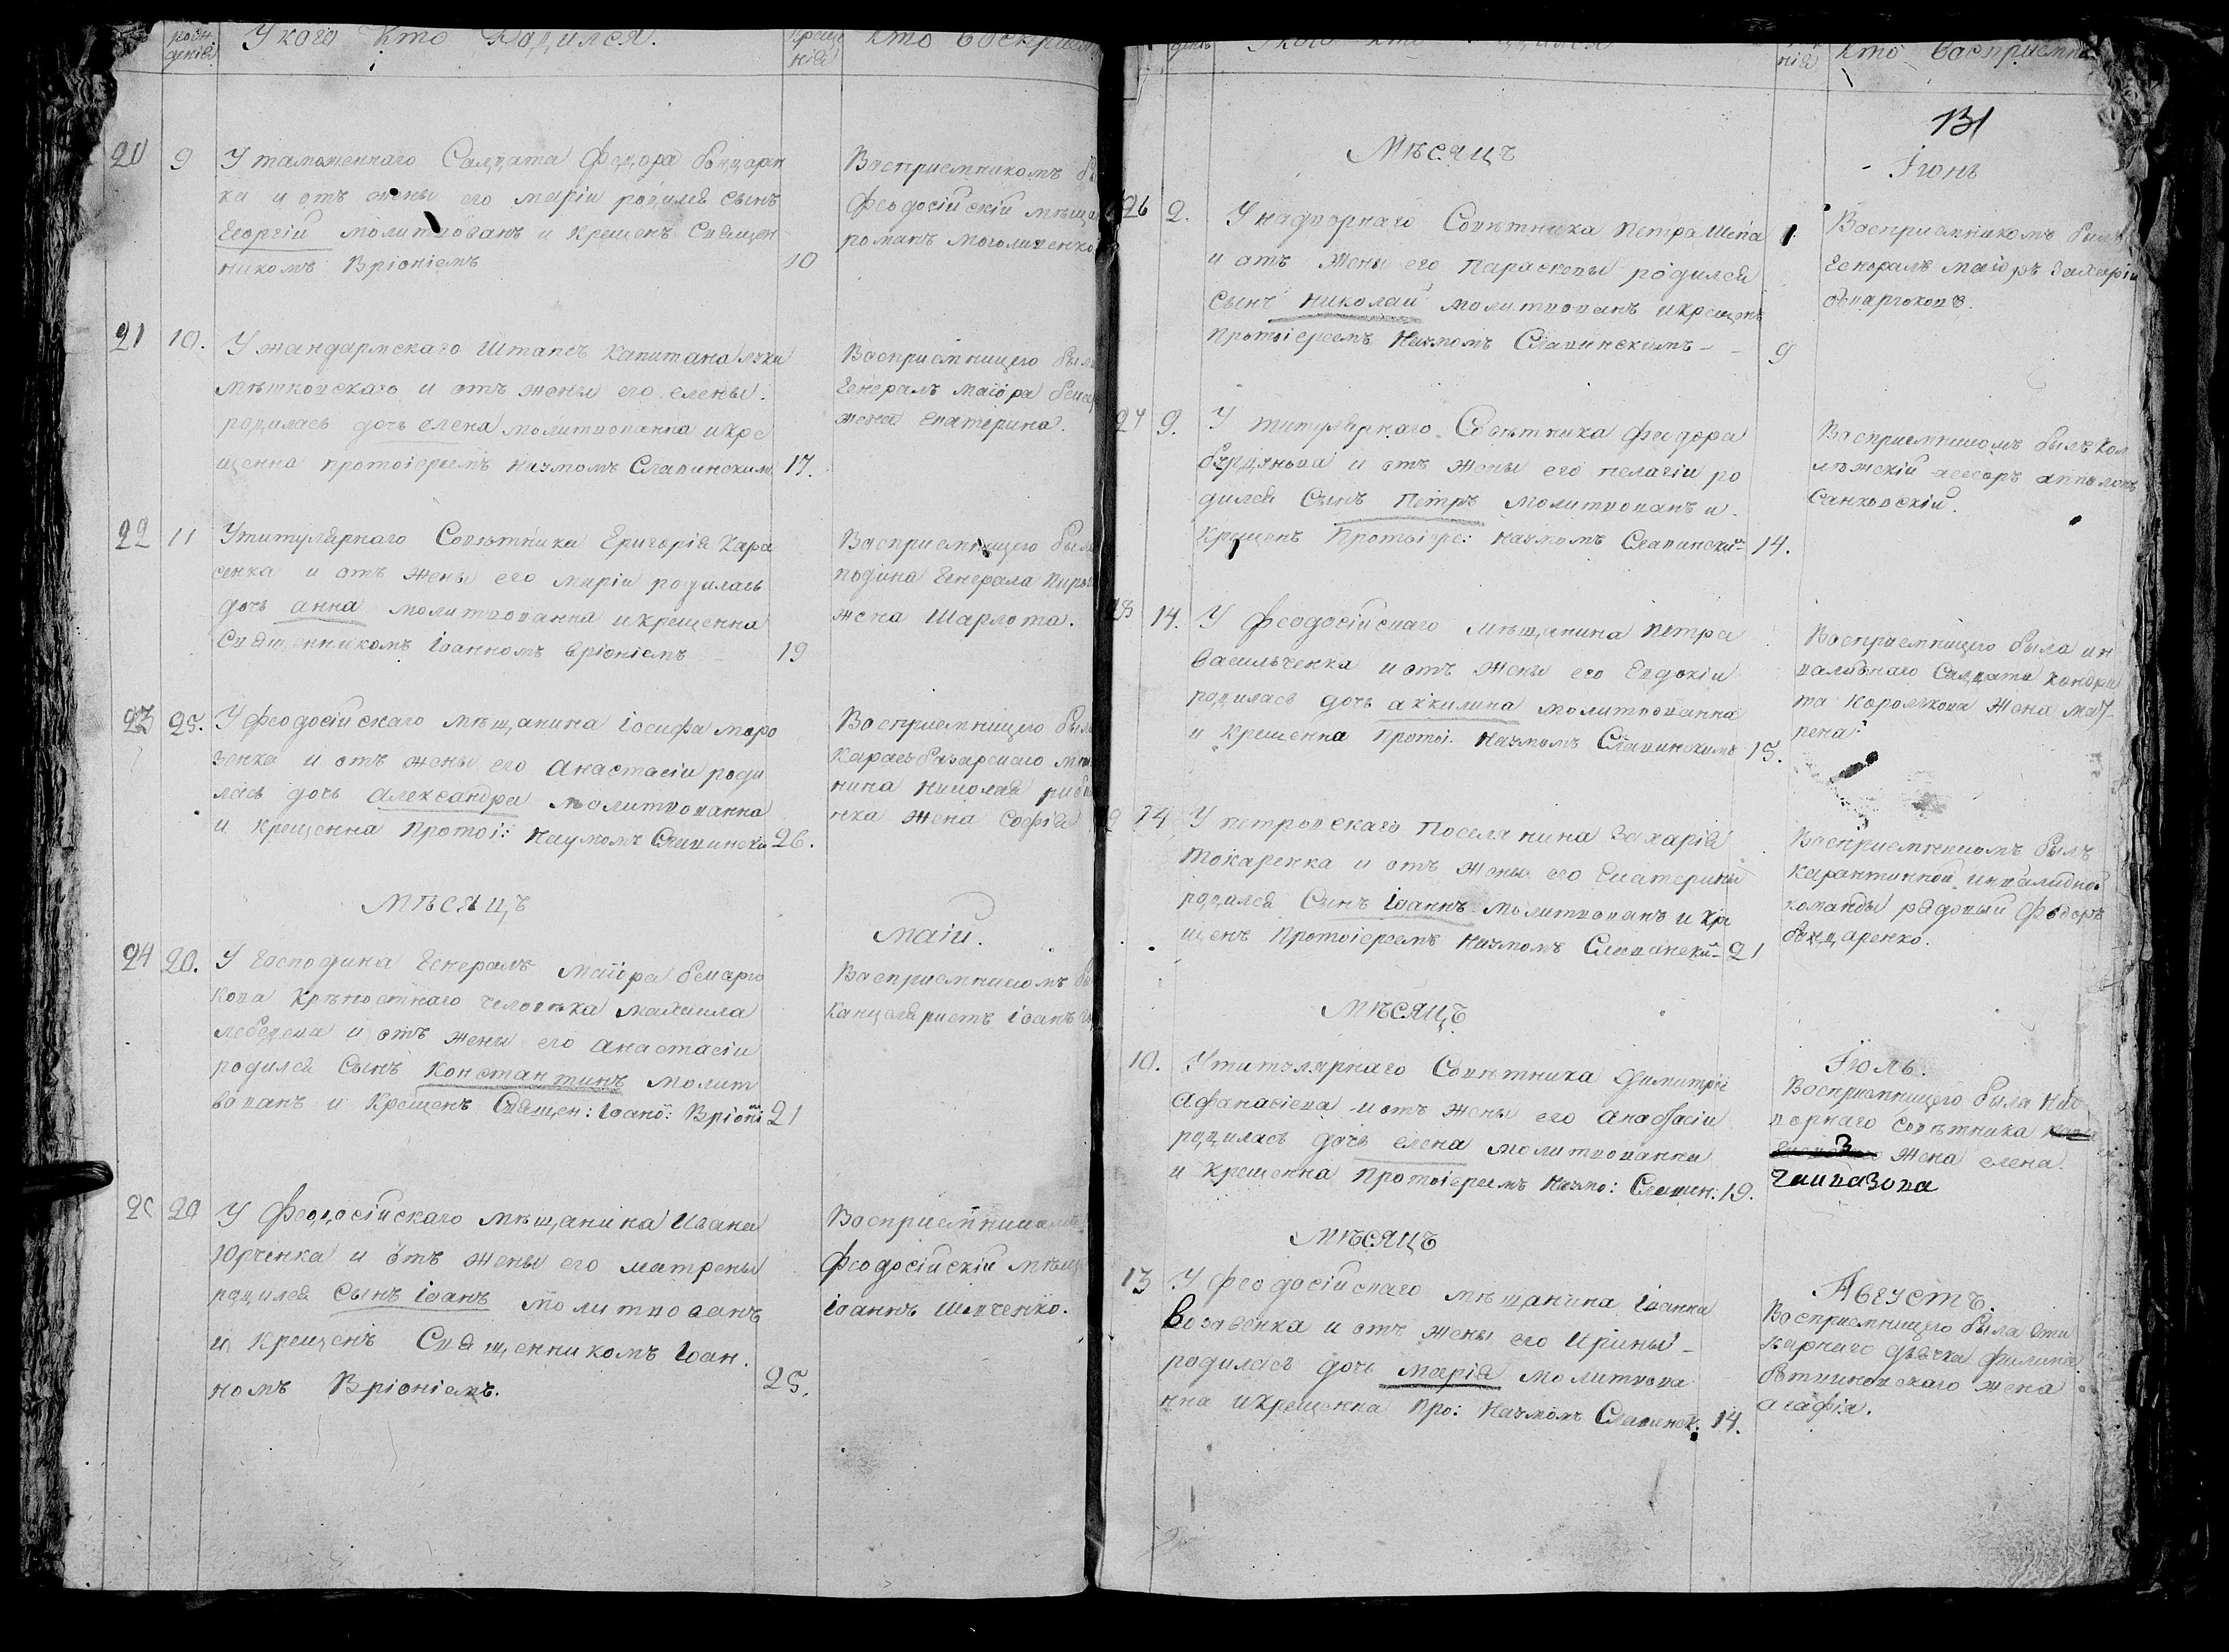 рожденія У кого кто Родился. креще
нія Кто Восприем
20 9 У таможеннаго Салдата Федора бондарен
ка и отъ жены его маріи родился сынъ
Георгій молитвованъ и крещенъ Священ
никомъ Вріоніемъ 10
Восприемникомъ бы
Феодосійскій мѣща
романъ
21 10. У жандармскаго Штапсъ Капитана луки
мѣшковскаго и отъ жены его елены
родилась дочь елена молитвованна икре
щенна протоіереемъ Наумомъ Славинскимъ 17.
Восприемницею была
Генералъ маіора
жена Екатерина.
22 11 Утитулярнаго Совѣтника Григорія Кара
сенка и отъ жены его маріи родилась
дочь анна молитвованна икрещенна
Священникомъ Іоанномъ вріоніемъ 19
Восприемницею была
Генерала
жена Шарлота.
23 25. У феодосійскаго мѣщанина іосифа моро
зенка и отъ жены его анастасіи роди
лась дочь александра молитвованна
и крещенна Протоі: Наумомъ Славински 26.
Восприемницею была
Карасъбазарскаго мѣща
нина Николая
нка жена Софія
мѣсяцъ маіи.
24 20. У Господина Генералъ маіора бекарю
кова Крѣпостнаго человѣка михаила
лебедева и отъ жены его анастасіи
родился Сынъ Константинъ молит
вованъ и Крещенъ Священ: Іоано: Вріоні 21
Восприемникомъ бы
Канцеляристъ іоанъ
25 20 У Феодосійскаго мѣщанина Ивана
Юрченка и отъ жены его матрены
родился Сынъ іоанъ молитвованъ
и Крещенъ Священникомъ Іоан.
номъ Вріоніемъ. 25.
Восприемникомъ
Феодосійскій мѣща
іоаннъ Шевченко.
нія Кто Восприемни
131
Мѣсяцъ Іюнь
26 2. У надворнаго Совѣтника Петра
и отъ жены его Параскевы родился
Сынъ николай молитвованъ икрещенъ
Протоіереемъ Наумомъ Славинскимъ 9
Восприемникомъ былъ
Генералъ маіоръ Захарій
27 9. У титулярнаго Совѣтника Феодора
и отъ жены его пелагіи ро
дился Сынъ Петръ молитвованъ и
Крещенъ Протоіере: Наумомъ Славински 14.
Восприемникомъ былъ Кол
лежскій асесоръ апполонъ
Санковскій.
28 14. У феодосійскаго мѣщанина петра
Васильченка и отъ жены его Евдокіи
родилась дочь аккилина молитвованна
и Крещенна Протоі. Наумомъ Славинскимъ 15.
Восприемницею была ин
валиднаго Салдата кондра
та Королькова жена мат
рена
14 У петровскаго Поселянина Захарія
Токаренка и отъ жены его Екатерины
родился Сынъ іоаннъ молитвованъ и кре
щенъ Протоіереемъ Наумомъ Славински 21
Восприемникомъ былъ
Карантинной инвалидной
команды рядовый федоръ
бондаренко.
мѣсяцъ Іюль.
10. Утитулярнаго Совѣтника Димитрія
Афанасіева и отъ жены его анастасіи
родилась дочь елена молитвованна
и Крещенна Протоіереемъ Наумо: Славин: 19.
Восприемницею была Над
ворнаго совѣтника
жена елена.
мѣсяцъ Августъ.
13 У феодосійскаго мѣщанина іоанна
и отъ жены его Ирины
родилась дочь марія молитвова
нна икрещенна Про: Наумомъ Славинск: 14.
Восприемницею была
дьячка филипа
жена
агафія.